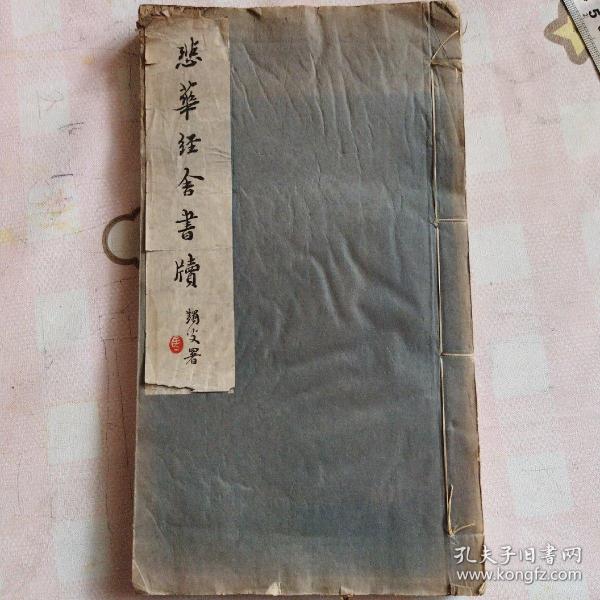 悲華經舍書牘
蠲叟署
孔夫子旧书网
www.kongfz.com
5